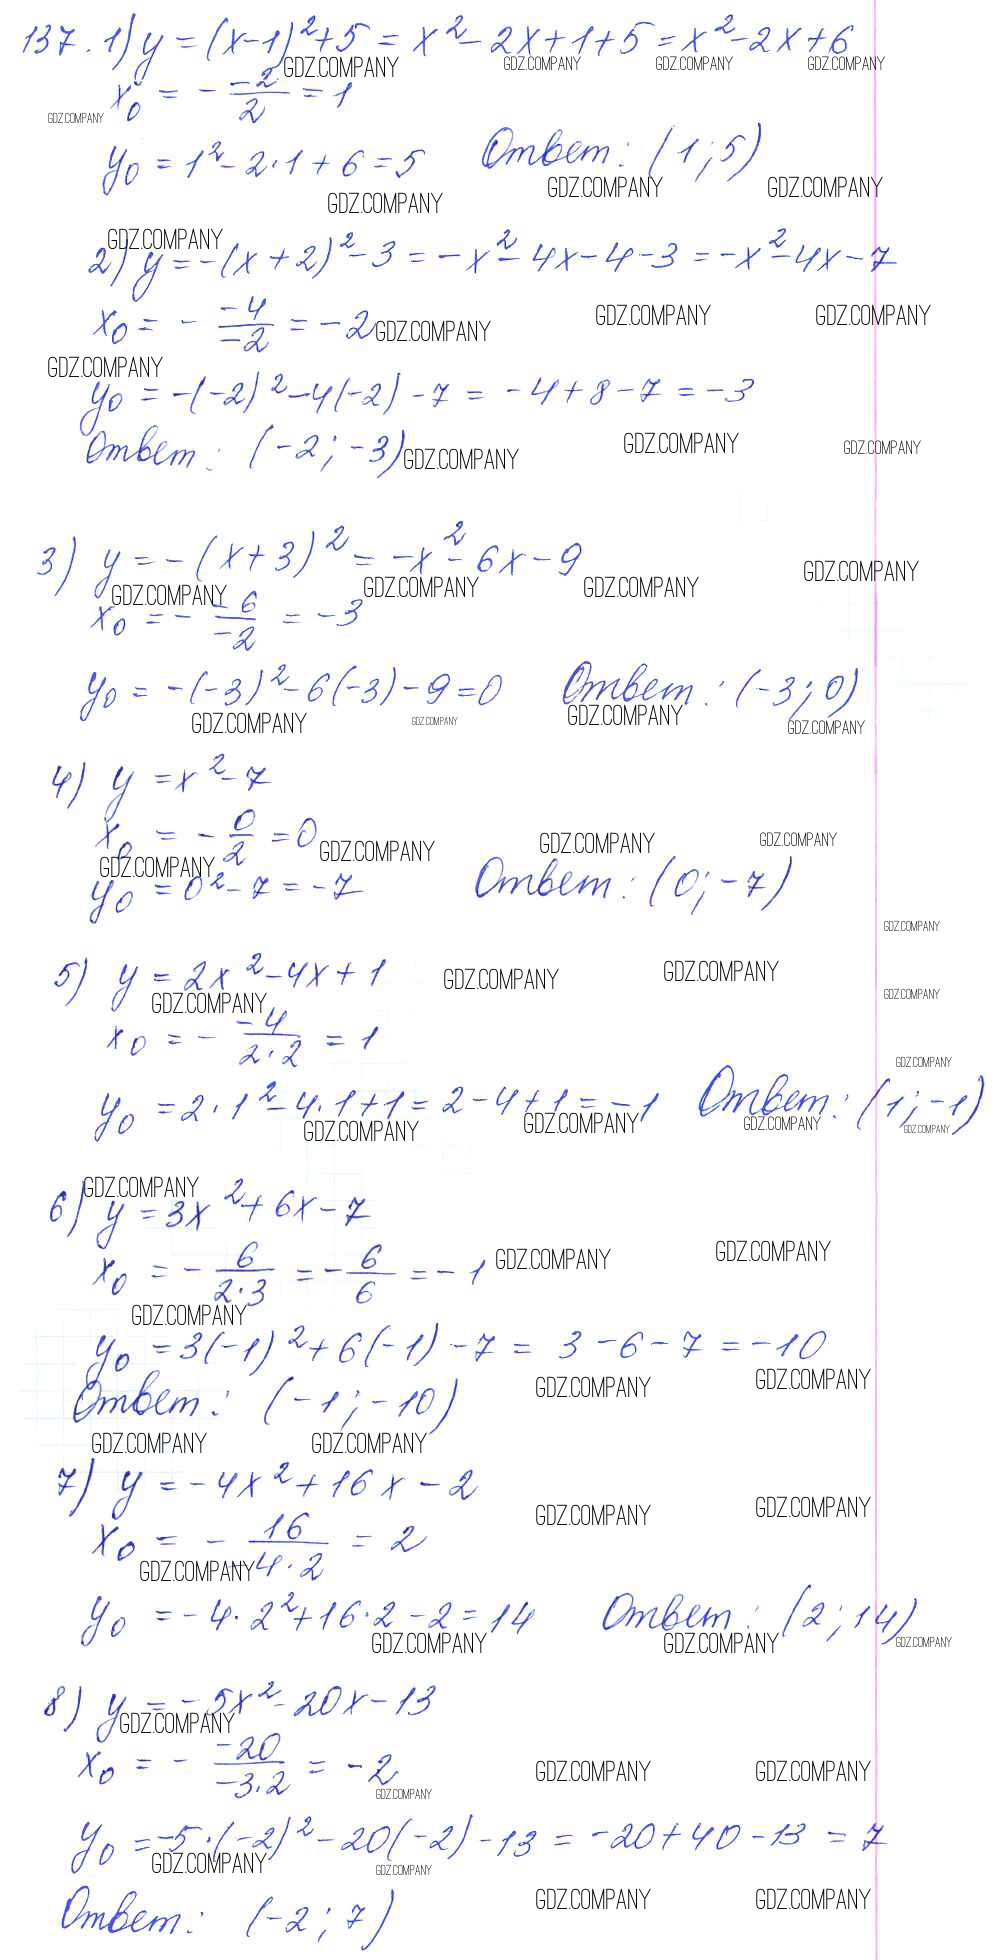 137. 1) y = (x-1)²+5 = x²-2x+1+5 = x²-2x+6
GDZ.COMPANY GDZ.COMPANY GDZ.COMPANY GDZ.COMPANY
x₀ = - -2/2 = 1
GDZ.COMPANY
y₀ = 1²-2·1+6 = 5 Ответ: (1;5)
GDZ.COMPANY GDZ.COMPANY GDZ.COMPANY
GDZ.COMPANY
2) y = -(x+2)²-3 = -x²-4x-4-3 = -x²-4x-7
x₀ = - -4/-2 = -2
GDZ.COMPANY GDZ.COMPANY GDZ.COMPANY
GDZ.COMPANY
y₀ = -(-2)²-4(-2)-7 = -4+8-7 = -3
Ответ: (-2;-3)
GDZ.COMPANY GDZ.COMPANY GDZ.COMPANY
3) y = -(x+3)² = -x²-6x-9
GDZ.COMPANY GDZ.COMPANY GDZ.COMPANY GDZ.COMPANY
x₀ = - -6/-2 = -3
y₀ = -(-3)²-6(-3)-9 = 0 Ответ: (-3;0)
GDZ.COMPANY GDZ.COMPANY GDZ.COMPANY GDZ.COMPANY
4) y = x²-7
x₀ = - 0/2 = 0
GDZ.COMPANY GDZ.COMPANY GDZ.COMPANY GDZ.COMPANY
y₀ = 0²-7 = -7 Ответ: (0;-7)
GDZ.COMPANY
5) y = 2x²-4x+1
GDZ.COMPANY GDZ.COMPANY GDZ.COMPANY GDZ.COMPANY
x₀ = - -4/2·2 = 1
GDZ.COMPANY
y₀ = 2·1²-4·1+1 = 2-4+1 = -1 Ответ: (1;-1)
GDZ.COMPANY GDZ.COMPANY GDZ.COMPANY GDZ.COMPANY
GDZ.COMPANY
6) y = 3x²+6x-7
x₀ = - 6/2·3 = - 6/6 = -1
GDZ.COMPANY GDZ.COMPANY GDZ.COMPANY
y₀ = 3(-1)²+6(-1)-7 = 3-6-7 = -10
Ответ: (-1;-10)
GDZ.COMPANY GDZ.COMPANY
GDZ.COMPANY GDZ.COMPANY
7) y = -4x²+16x-2
GDZ.COMPANY GDZ.COMPANY
x₀ = - 16/-4·2 = 2
GDZ.COMPANY
y₀ = -4·2²+16·2-2 = 14 Ответ: (2;14)
GDZ.COMPANY GDZ.COMPANY GDZ.COMPANY
8) y = -5x²-20x-13
GDZ.COMPANY
x₀ = - -20/-3·2 = -2
GDZ.COMPANY GDZ.COMPANY GDZ.COMPANY
y₀ = -5·(-2)²-20(-2)-13 = -20+40-13 = 7
GDZ.COMPANY GDZ.COMPANY
Ответ: (-2;7)
GDZ.COMPANY GDZ.COMPANY